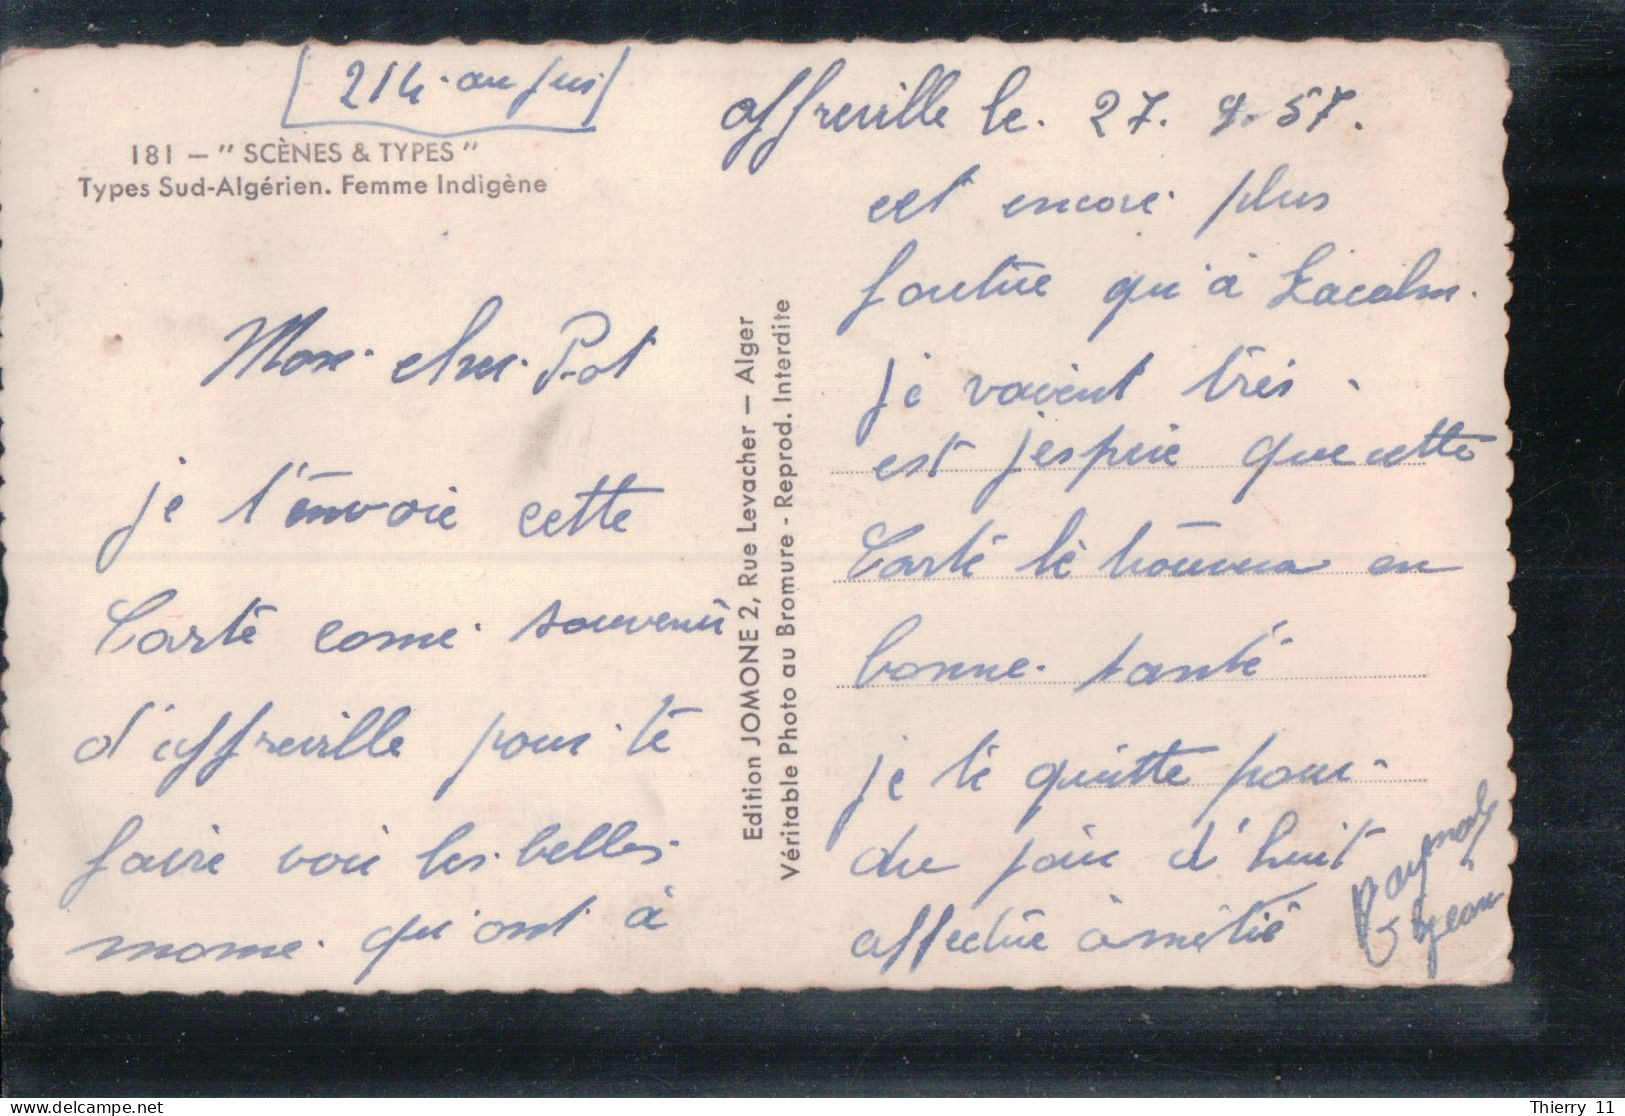 214 au jus
181 — " SCÈNES & TYPES "
Types Sud-Algérien. Femme Indigène
Mon cher Pot
je t'envoie cette
Carte come souvenir
d'affreville pour te
faire voir les belles
mome qu'ont à
Edition JOMONE 2, Rue Levacher — Alger
Véritable Photo au Bromure - Reprod. Interdite
affreville le 27. 9. 57.
cet encore plus
foutue qu'à Lacalm.
je vaient très
est j'espère que cette
Carte te trouvera en
bonne santé
je te quitte pour
du jour d'huit
affectue amitié
Raymond
Jean
Thierry 11